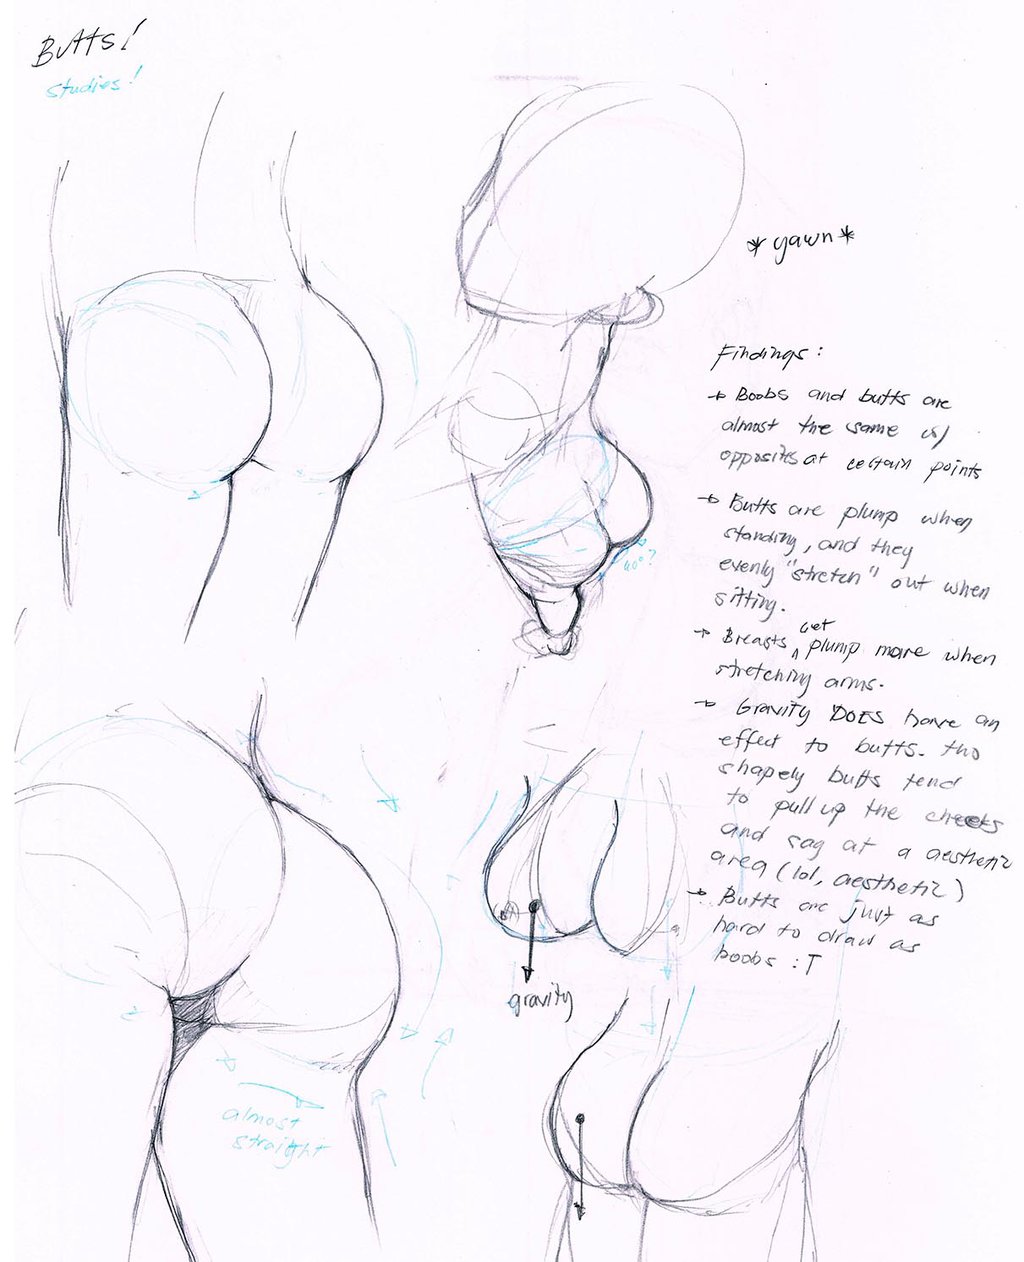 Butts!
studies!
*yawn*
Findings:
→ Boobs and butts are
almost the same w/
opposits at certain points
→ Butts are plump when
standing, and they
evenly "stretch" out when
sitting.
→ Breasts get plump more when
stretching arms.
→ Gravity DOES have an
effect to butts. tho
shapely butts tend
to pull up the cheeks
and sag at a aesthetic
area (lol, aesthetic)
→ Butts are just as
hard to draw as
boobs :T
40°?
gravity
almost
straight